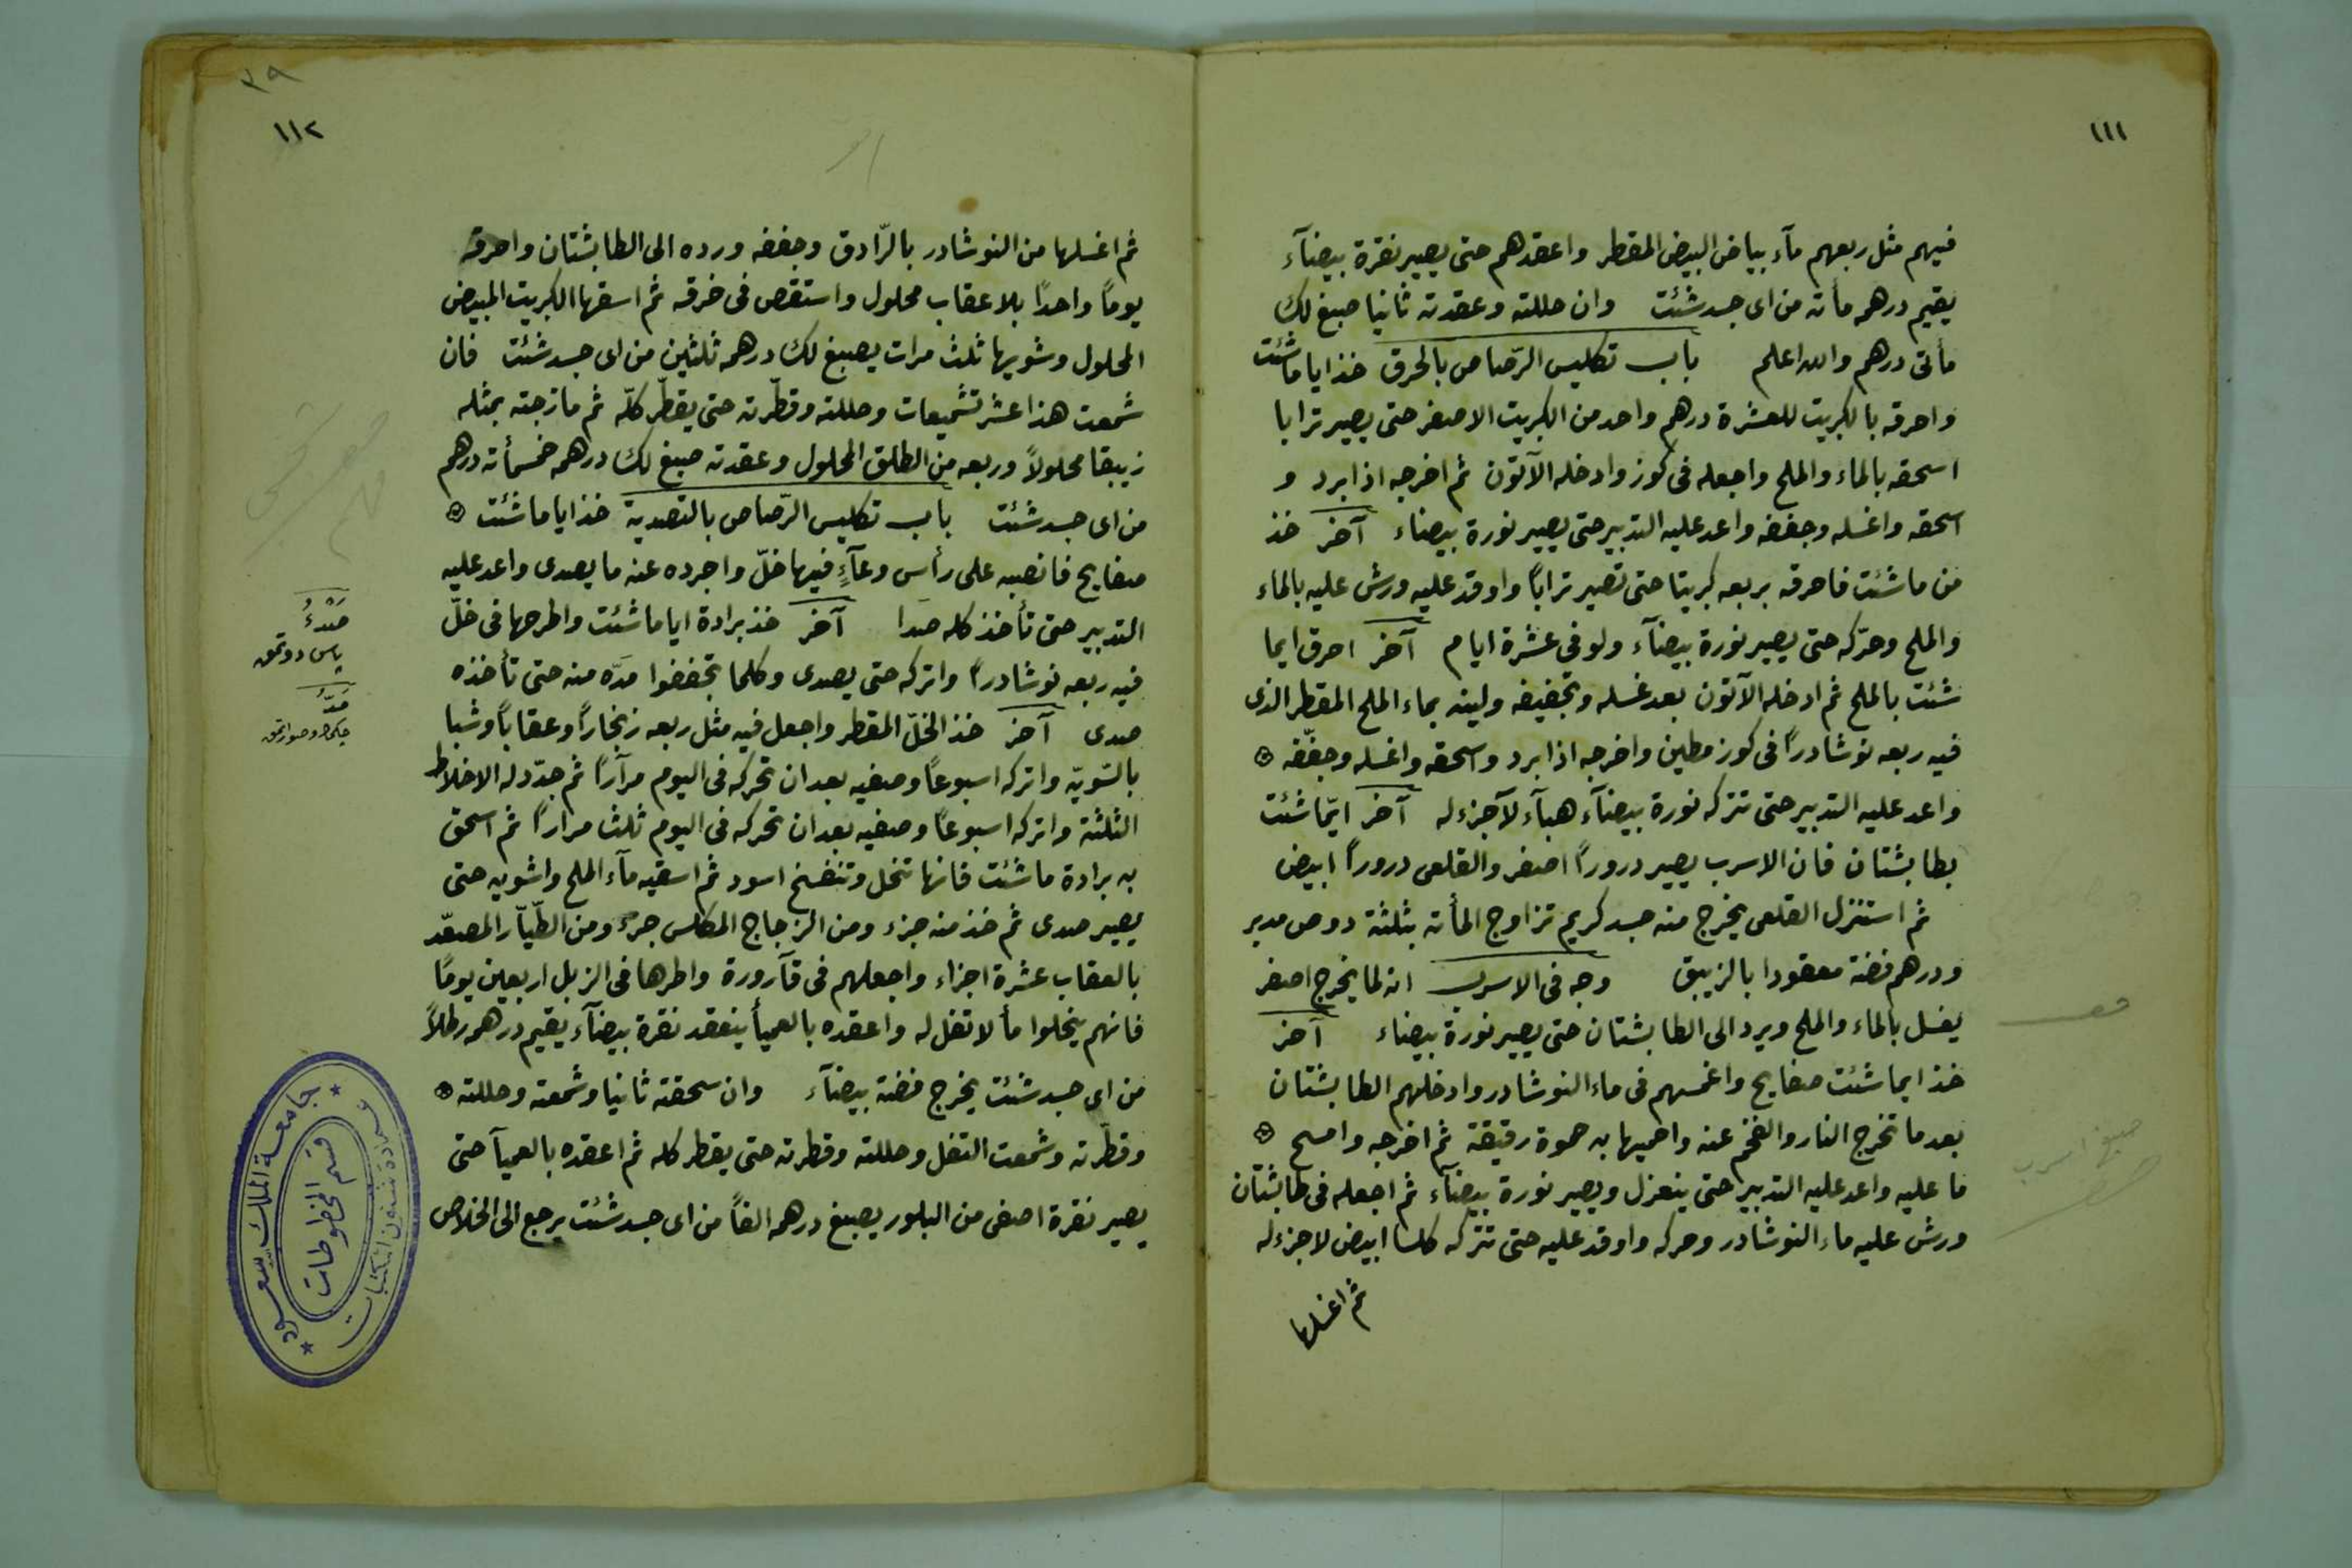 ١١١
فيهم مثل ربعهم مآء بياض البيض المقطر واعقدهم حتى يصير نقرة بيضآء
يقيم درهمه مأته من اى جسد شئت وان حللته وعقدته ثانيا صبغ لك
مأتى درهم والله اعلم باب تكليس الرّصاص بالحرق خذ ايا ما شئت
واحرقه بالكبريت للعشرة درهم واحد من الكبريت الاصفر حتى يصير ترابا
اسحقه بالماء والملح واجعله فى كوز وادخله الآتون ثم اخرجه اذا برد و
اسحقه واغسله وجففه واعد عليه التدبير حتى يصير نورة بيضاء آخر خذ
من ما شئت فاحرقه بربعه كبريتا حتى تصير تراباً واوقد عليه ورش عليه بالماء
والملح وحرّكه حتى يصير نورة بيضآء ولو فى عشرة ايام آخر احرق ايما
شئت بالملح ثم ادخله الآتون بعد غسله وتجفيفه ولينه بماء الملح المقطر الذى
فيه ربعه نوشادراً فى كوز مطين واخرجه اذا برد واسحقه واغسله وجفّفه
واعد عليه التدبير حتى تتركه نورة بيضآء هبآء لآجزء له آخر ايّما شئت
بطابشتان فان الاسرب يصير دروراً اصفر والقلعى دروراً ابيض
ثم استنزل القلعى يخرج منه جسد كريم تزاوج المأته بثلثة دوص مدبر
ودرهم فضة معقودا بالزيبق وجه فى الاسرب انه لما يخرج اصفر
يغسل بالماء والملح ويرد الى الطابشتان حتى يصير نورة بيضاء آخر
خذ ايما شئت صفايح واغمسهم فى ماء النوشادر وادخلهم الطابشتان
بعد ما تخرج النار والفحم عنه واحميها به حموة رقيقة ثم اخرجه وامسح
ما عليه واعد عليه التدبير حتى ينعزل ويصير نورة بيضآء ثم اجعله فى طابشتان
ورش عليه ماء النوشادر وحركه واوقد عليه حتى تتركه كلسا ابيض لاجزء له
ثم اغسلها
٣٩
١١٢
ثم اغسلها من النوشادر بالرّادق وجففه ورده الى الطابشتان واحرقه
يوماً واحدًا بلا عقاب محلول واستقص فى خرقه ثم اسقها الكبريت المبيض
المحلول وشويها ثلث مرات يصبغ لك درهمه ثلثين من اى جسد شئت فان
شمعت هذا عشر تشميعات وحللته وقطّرته حتى يقطّر كلّه ثم مازجته بمثله
زيبقا محلولاً وربعه من الطلق المحلول وعقدته صبغ لك درهمه خمسمأته درهم
من اى جسد شئت باب تكليس الرّصاص بالتصدية خذ ايا ما شئت
صفايح فانصبه على رأس وعآءٍ فيها خلّ واجرده عنه ما يصدى واعد عليه
التدبير حتى تأخذ كله صدا آخر خذ برادة ايا ما شئت واطرحها فى خلّ
فيه ربعه نوشادراً واتركه حتى يصدى وكلما تجففوا مَدّه منه حتى تأخذه
صدى آخر خذ الخلّ المقطر واجعل فيه مثل ربعه زنجاراً وعقاباً وشبا
بالسّويّه واتركه اسبوعاً وصفيه بعد ان تحركه فى اليوم مرآراً ثم جدّد له الاخلاط
الثلثة واتركه اسبوعاً وصفيه بعد ان تحركه فى اليوم ثلث مراراً ثم اسحق
به برادة ما شئت فانها تنحل وتنفسخ اسود ثم اسقيه مآء الملح واشويه حتى
يصير صدى ثم خذ منه جزء ومن الزجاج المكلس جزء ومن الطّيّار المصعّد
بالعقاب عشرة اجزاء واجعلهم فى قآرورة واطرها فى الزبل اربعين يومًا
فانهم ينحلوا مأ لا تفل له واعقده بالعميأ ينعقد نقرة بيضآء يقيم درهمه رطلاً
من اى جسد شئت يخرج فضة بيضآء وان سحقته ثانيا وشمعته وحللته
وقطّرته وشمعت التفل وحللته وقطرته حتى يقطر كله ثم اعقده بالعميآ حتى
يصير نقرة اصفى من البلور يصبغ درهمه الفاً من اى جسد شئت يرجع الى الخلاص
صَدْءُ
پاس دوتمق
مَدّ
جامعة الملك سعود
عمادة شئون المكتبات
قسم المخطوطات